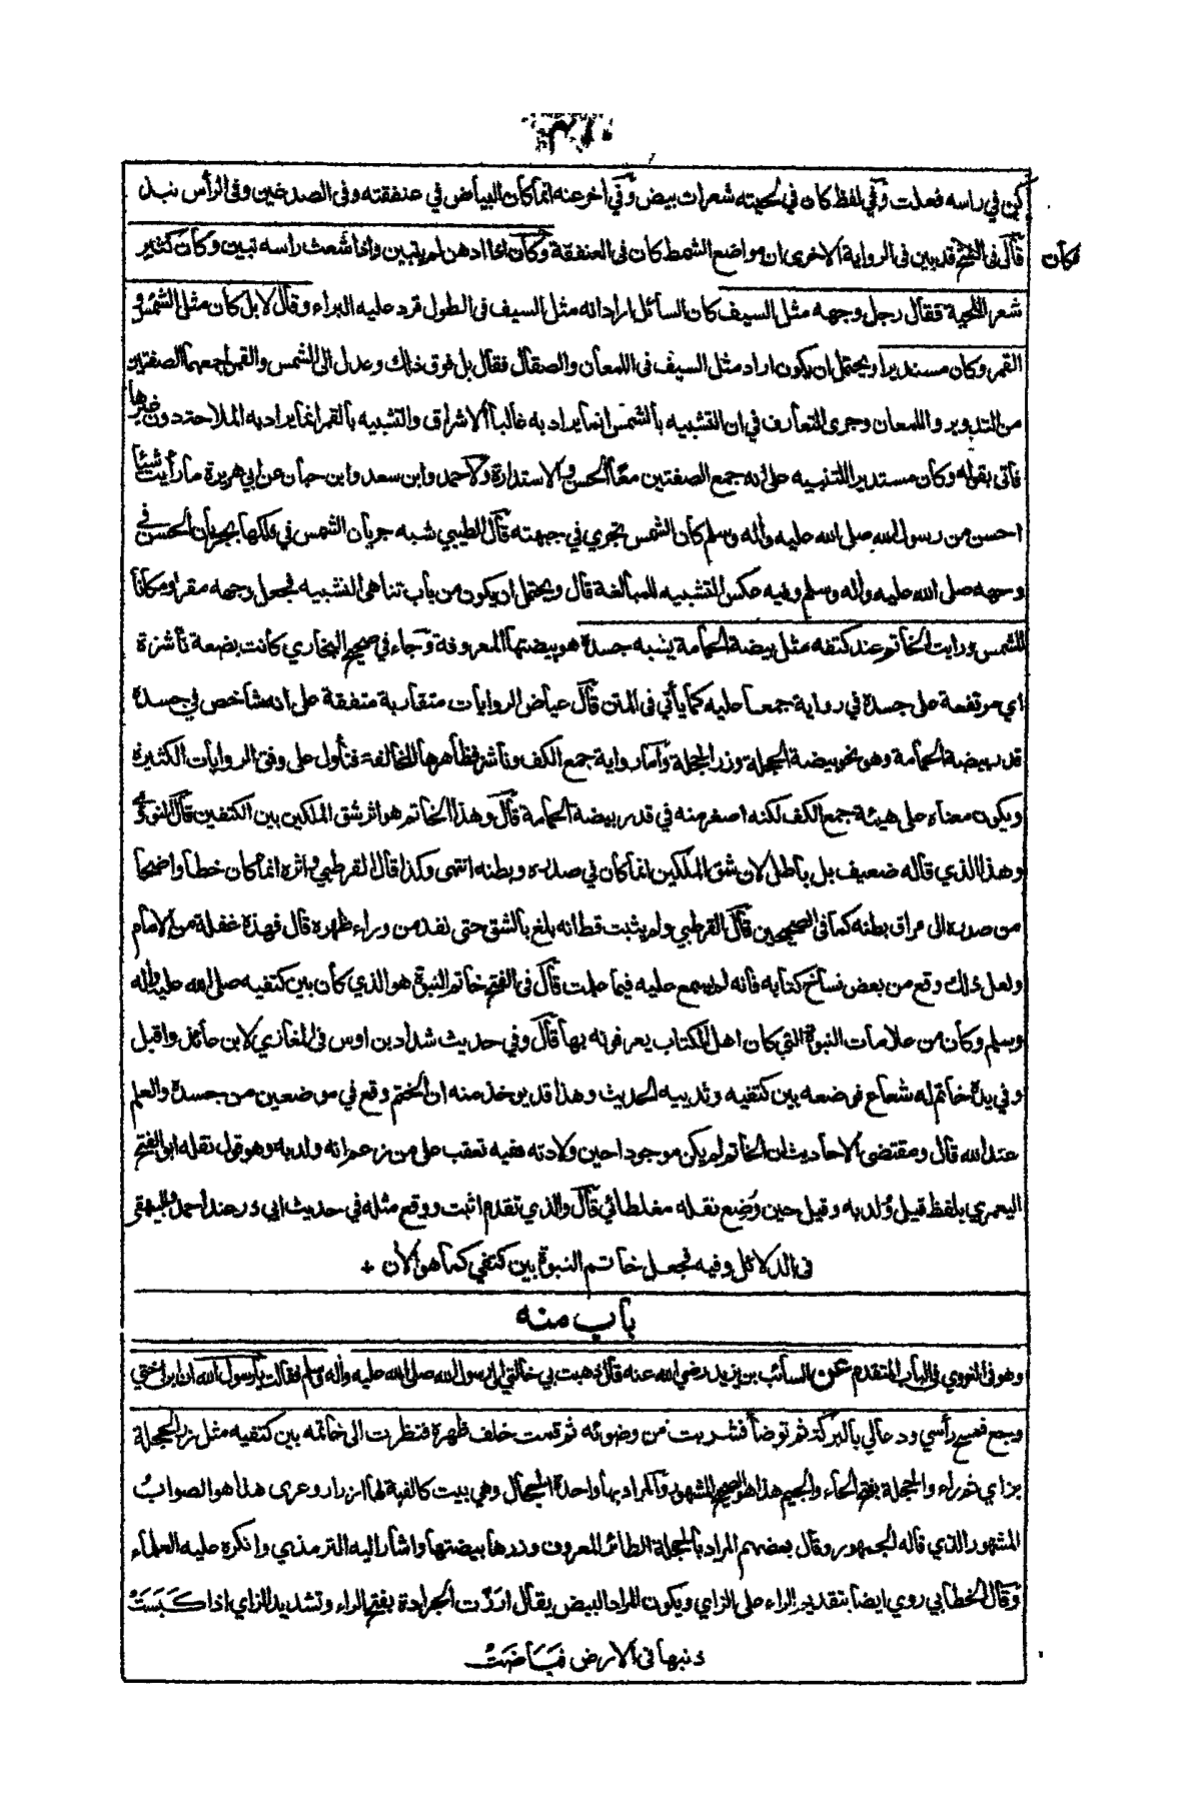 كن في راسه فعلت وفي لفظ كان في لحيته شعرات بيض وفي اخر عنه انما كان البياض في عنفقته وفى الصدغين وفى الرأس نبذ
قال فى الفتح قد بين فى الرواية الاخرى ان مواضع الشمط كان فى العنفقة وكان اذا ادهن لم يتبين واذا شعث راسه تبين وكان كثير
فكان
شعر اللحية فقال رجل وجهه مثل السيف كان السائل اراد انه مثل السيف فى الطول فرد عليه البراء وقال لا بل كان مثل الشمس و
القمر وكان مستديرا ويحتمل ان يكون اراد مثل السيف فى اللمعان والصقال فقال بل فوق ذلك وعدل الى الشمس والقمر لجمعهما الصفتين
من التدوير واللمعان وجرى التعارف في ان التشبيه بالشمس انما يراد به غالبا الاشراق والتشبيه بالقمر انما يراد به الملاحة دون غيرها
فاتى بقوله وكان مستديرا للتنبيه على انه جمع الصفتين معًا الحسن والاستدارة ولاحمد وابن سعد وابن حبان عن ابي هريرة ما رأيت شيئا
احسن من رسول الله صلى الله عليه واله وسلم كان الشمس تجري في جبهته قال الطيبي شبه جريان الشمس في فلكها بجريان الحسن في
وجهه صلى الله عليه واله وسلم وفيه عكس التشبيه للمبالغة قال ويحتمل ان يكون من باب تناهى التشبيه فجعل وجهه مقرا ومكانا
للشمس ورايت الخاتم عند كتفه مثل بيضة الحمامة يشبه جسده هو بيضتها المعروفة وجاء في صحيح البخاري كانت بضعة ناشزة
اي مرتفعة على جسده في رواية جمعا عليه كما يأتي فى المتن قال عياض الروايات متقاربة متفقة على انه شاخص في جسده
قدر بيضة الحمامة وهو نحو بيضة الحجلة وزر الحجلة واما رواية جمع الكف وناشز فظاهرها المخالفة فتأول على وفق الروايات الكثيرة
ويكون معناه على هيئة جمع الكف لكنه اصغر منه في قدر بيضة الحمامة قال وهذا الخاتم هو اثر شق الملكين بين الكتفين قال النووي
وهذا الذي قاله ضعيف بل باطل لان شق الملكين انما كان في صدره وبطنه انتهى وكذا قال القرطبي واثره انما كان خطا واضحا
من صدره الى مراق بطنه كما فى الصحيحين قال القرطبي ولم يثبت قط انه بلغ بالشق حتى نفذ من وراء ظهره قال فهذه غفلة من الامام
ولعل ذلك وقع من بعض نساخ كتابه فانه لم يسمع عليه فيما علمت قال فى الفتح خاتم النبوة هو الذي كان بين كتفيه صلى الله عليه واله
وسلم وكان من علامات النبوة التي كان اهل الكتاب يعرفونه بها قال وفي حديث شداد بن اوس فى المغازي لابن عائذ واقبل
وفي يده خاتم له شعاع فوضعه بين كتفيه وثدييه الحديث وهذا قد يوخذ منه ان الختم وقع في موضعين من جسده والعلم
عند الله قال ومقتضى الاحاديث ان الخاتم لم يكن موجودا حين ولادته ففيه تعقب على من زعم انه ولد به وهو قول نقله ابو الفتح
اليعمري بلفظ قيل ولد به وقيل حين وضع نقله مغلطائي قال والذي تقدم اثبت ووقع مثله في حديث ابى ذر عند احمد والبيهقى
فى الدلائل وفيه فجعل خاتم النبوة بين كتفي كما هو الآن +
باب منه
وهو فى النووي فى الباب المتقدم عن السائب بن يزيد رضي الله عنه قال ذهبت بي خالتي الى رسول الله صلى الله عليه واله وسلم فقالت يا رسول الله ان ابن اختي
وجع فمسح رأسي ودعا لي بالبركة ثم توضأ فشربت من وضوئه ثم قمت خلف ظهره فنظرت الى خاتمه بين كتفيه مثل زر الحجلة
بزاي ثم راء والحجلة بفتح الحاء والجيم هذا هو الصحيح المشهور والمراد بها واحدة الحجال وهي بيت كالقبة لها ازرار وعرى هذا هو الصواب
المشهور الذي قاله الجمهور وقال بعضهم المراد بالحجلة الطائر المعروف وزرها بيضتها واشار اليه الترمذي وانكره عليه العلماء
وقال الخطابي روي ايضا بتقديم الراء على الزاي ويكون المراد البيض يقال ارزّت الجرادة بفتح الراء وتشديد الزاي اذا كَبَسَتْ
ذنبها فى الارض فَبَاضَتْ